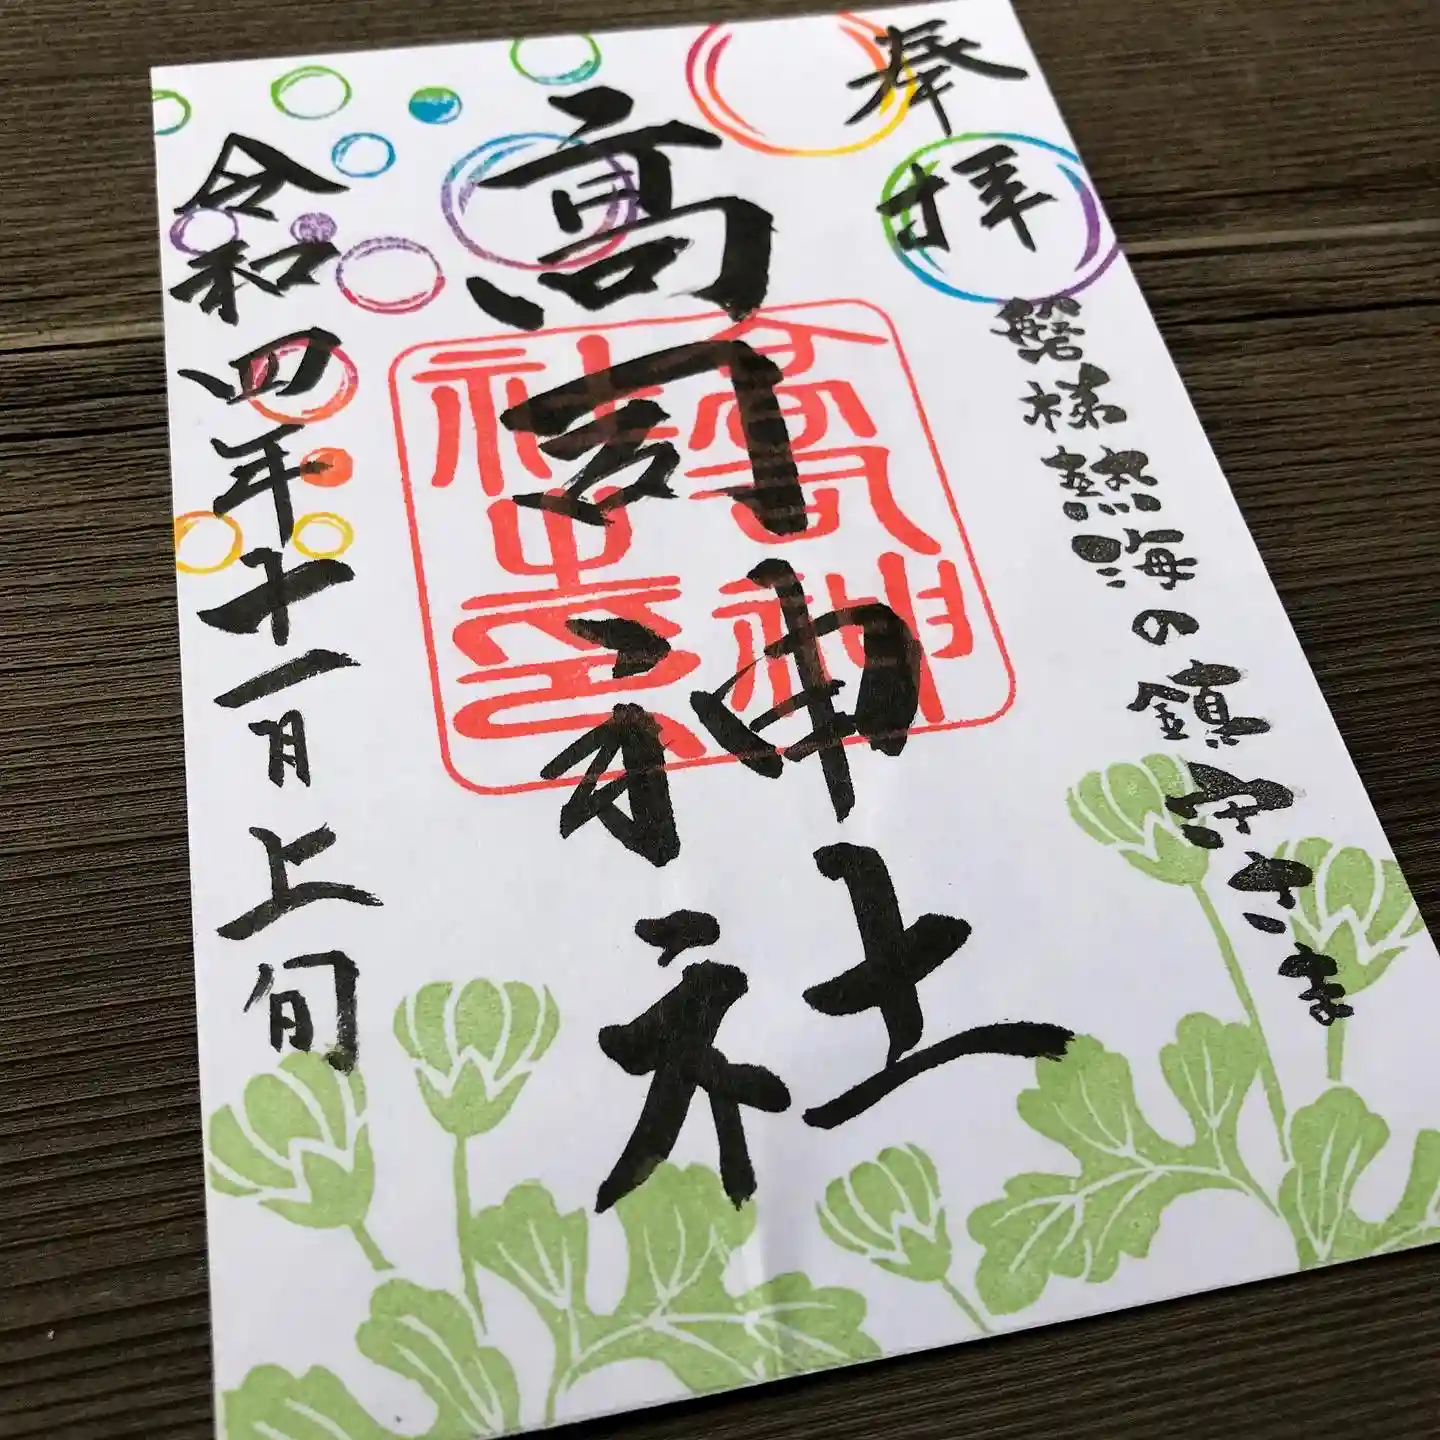 奉拝
磐梯熱海の鎮守さま
高司神社
高司神社之印
令和四年十一月上旬